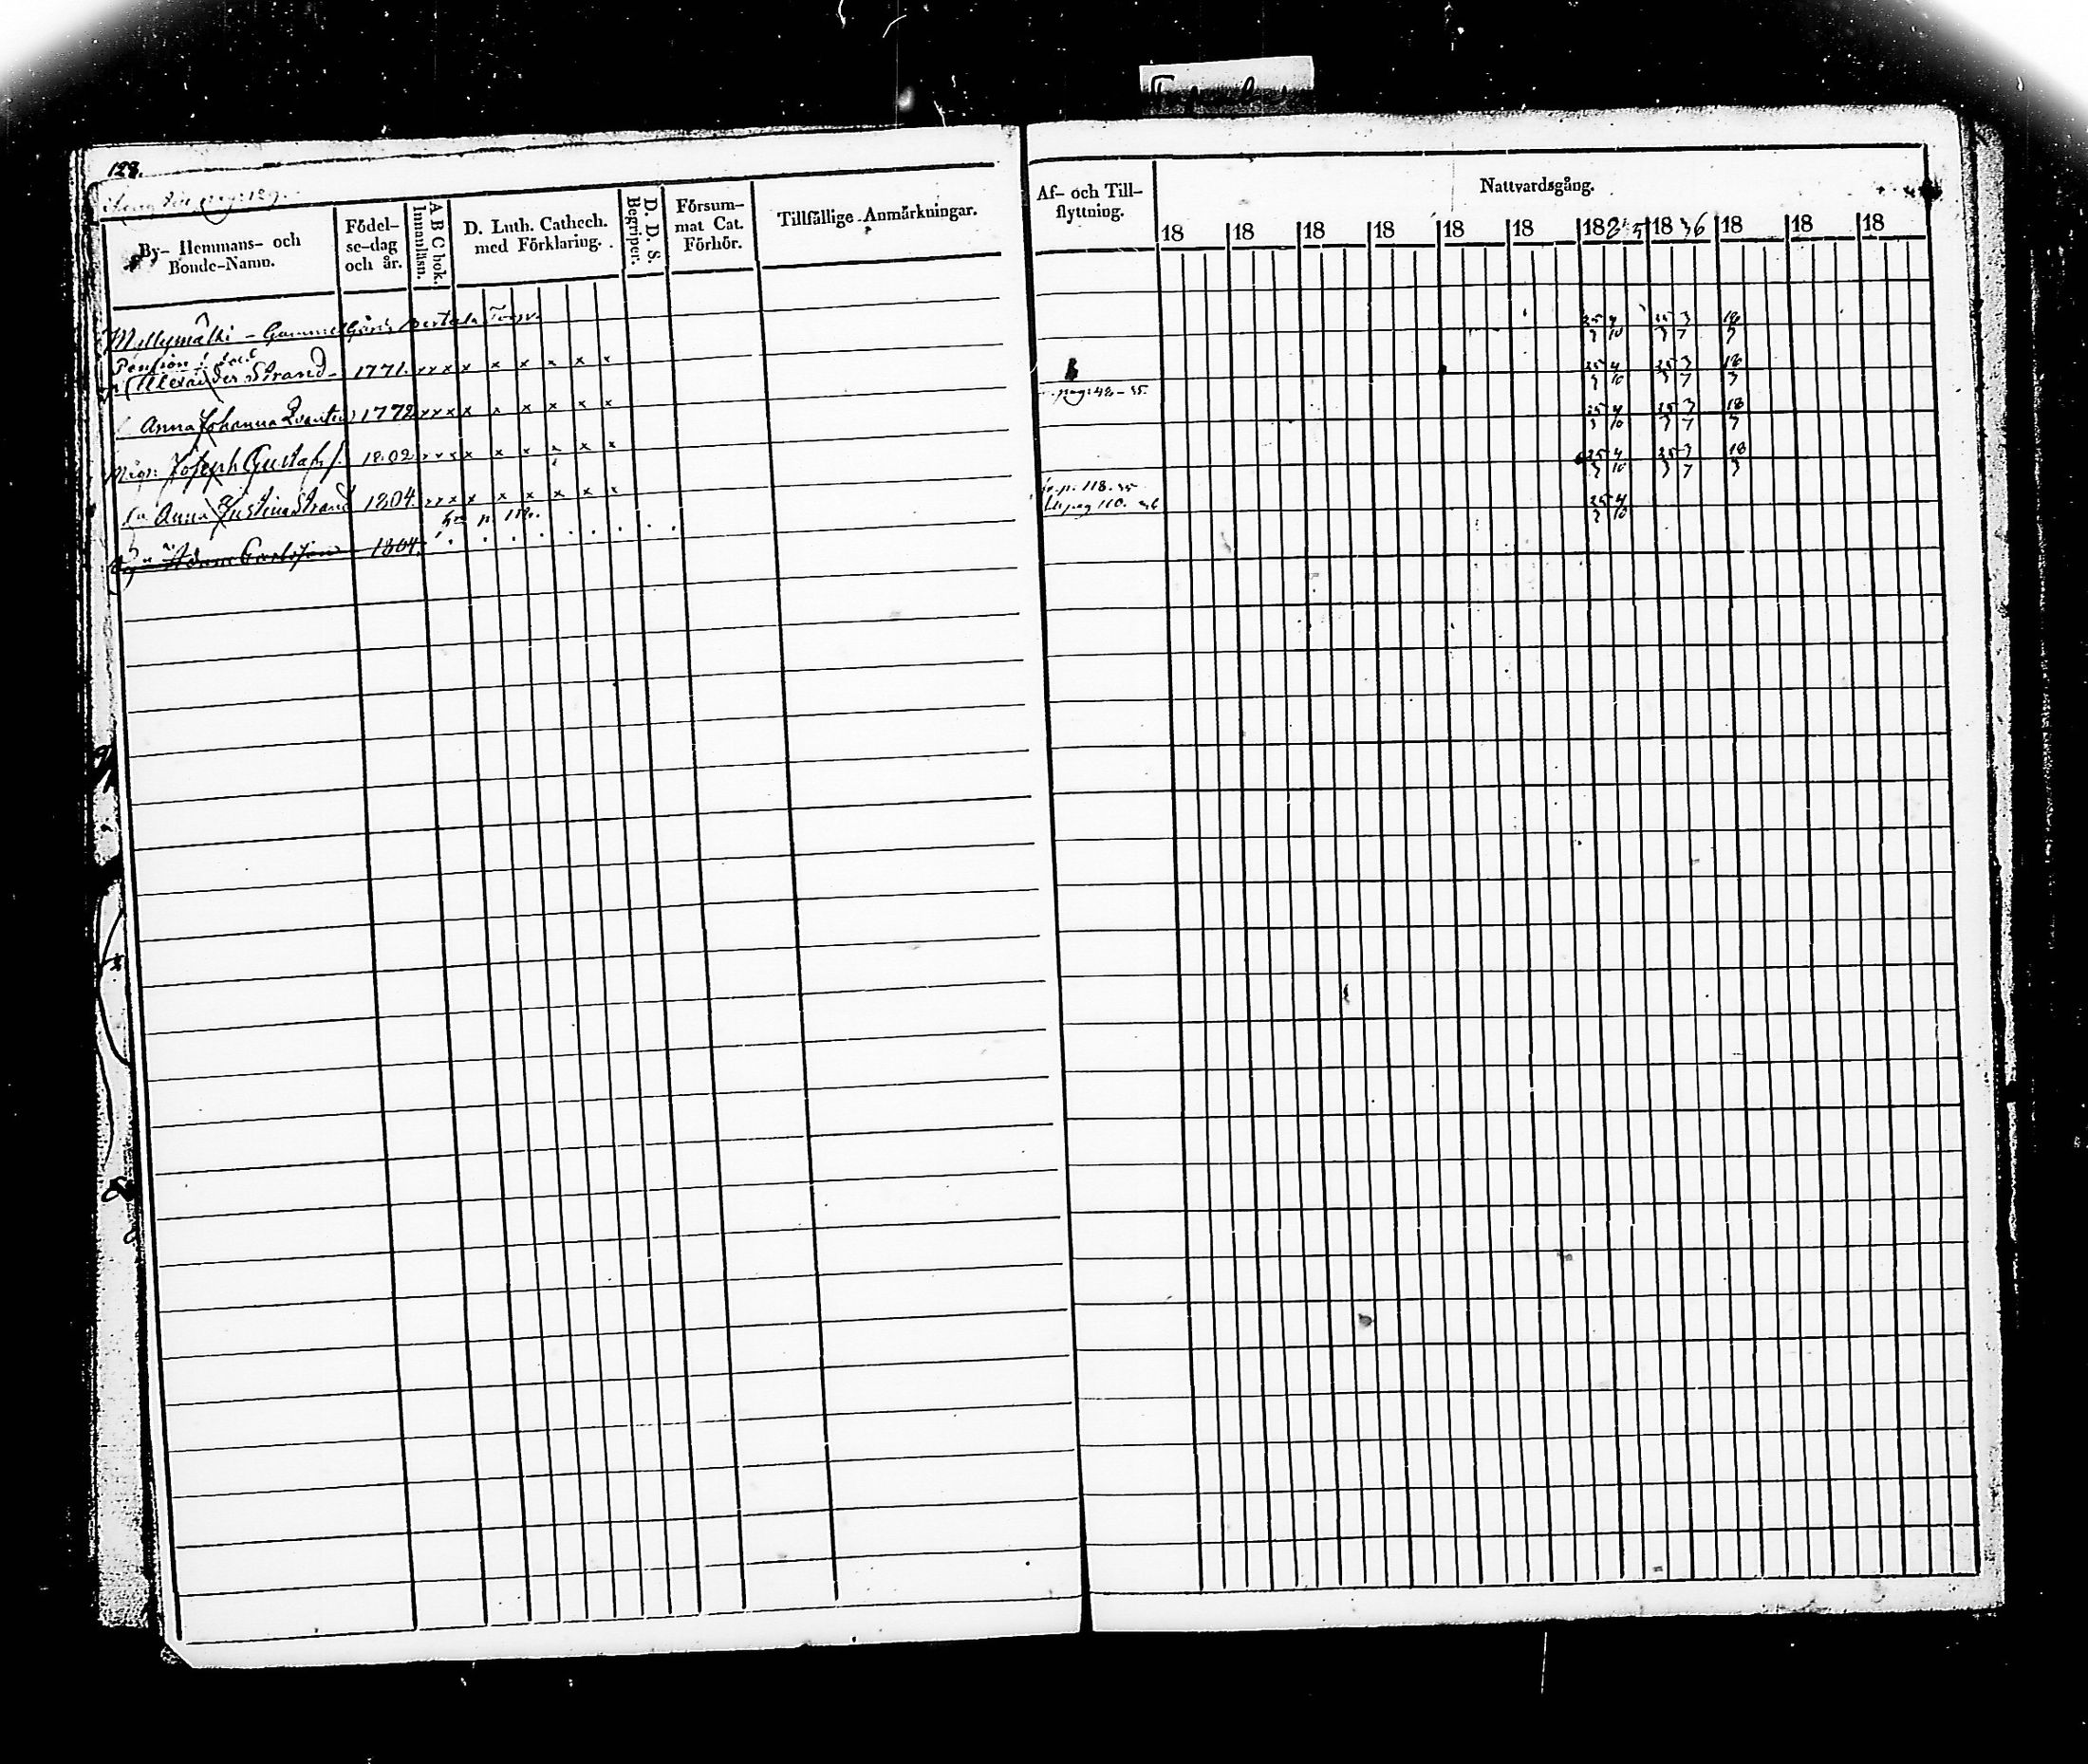 128.
pag: 129.
By- Hemmans- och Bonde-Namn.
Födel-se-dag och år.
A B C bok. Innanläsn.
D. Luth. Cathech. med Förklaring.
D. D. S. Begriper.
Försum-mat Cat. Förhör.
Tillfällige Anmärkningar.
Myllymäki - Gammelgårds Torp.
Pension:
Alexander Strand 1771. x x x x x x x x x
Anna Johanna 1772 x x x x x x x x x
Joseph Gustafs s. 1802 x x x x x x x x x
Anna Justina Strand 1804. x x x x x x x x x
fr. p. 118.
Adam Gustafsson 1804.
Af- och Till-flyttning.
Nattvardsgång.
18 18 18 18 18 18 1835 1836 18 18 18
25/3 4/10 25/3 3/7 18/3
25/3 4/10 25/3 3/7 18/3
pag: 42 - 35.
25/3 4/10 25/3 3/7 18/3
25/3 4/10 25/3 3/7 18/3
fr. p. 118. 35
till pag 110. 36
25/3 4/10